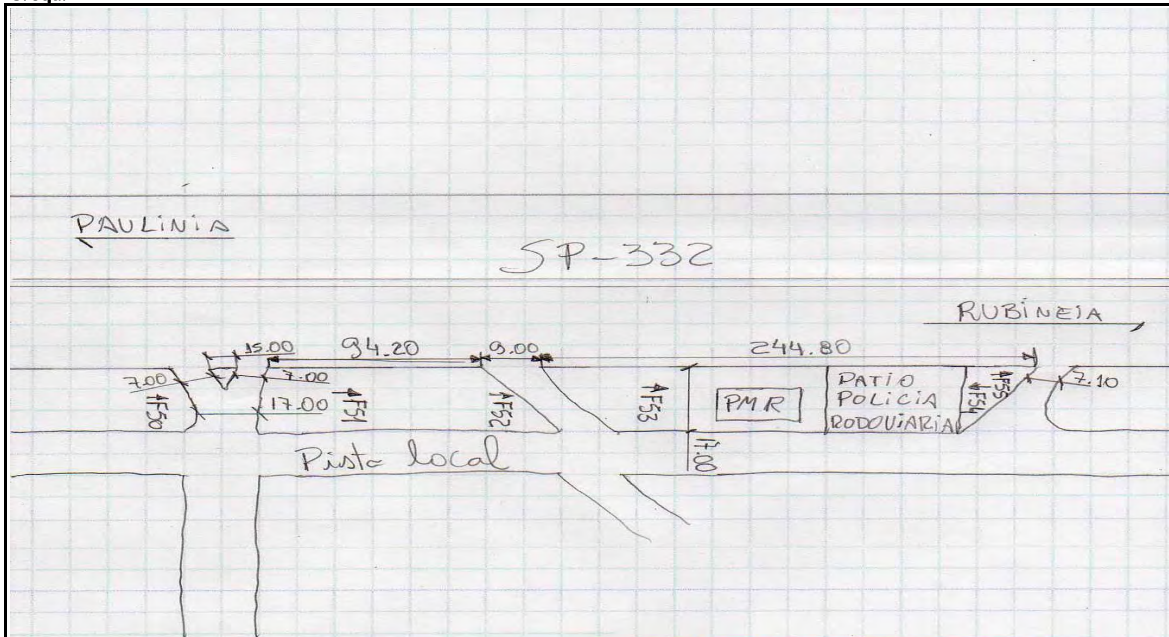 PAULINIA
SP-332
RUBINEIA
15.00
94.20
9.00
244.80
7.00
7.00
17.00
7.10
F50
F51
F52
F53
PMR
PATIO
POLICIA
RODOVIARIA
F54
F55
17.00
Pista local